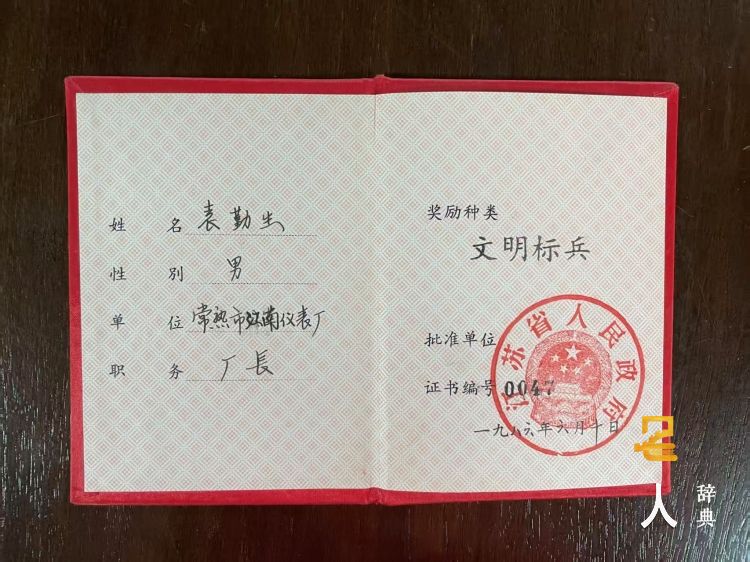 姓 名 袁勤生
性 别 男
单 位 常熟市江南仪表厂
职 务 厂長
奖励种类
文明标兵
批准单位
江苏省人民政府
证书编号 0047
一九八六年六月十日
名人
辞典